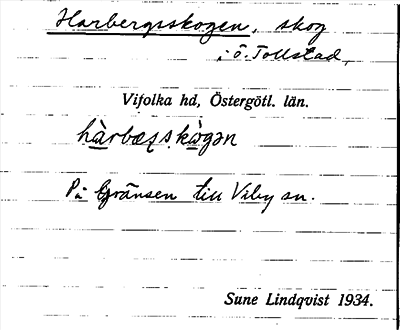 Harbergsskogen, skog
i Ö. Tollstad,
Vifolka hd, Östergötl. län.
På Gränsen till Viby sn.
Sune Lindqvist 1934.